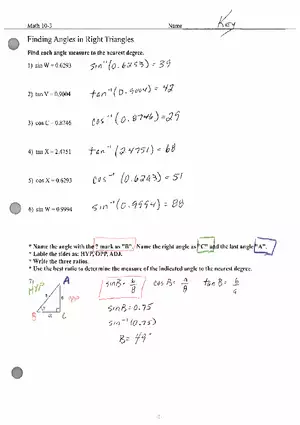 Math 10-3 Name Key
Finding Angles in Right Triangles
Find each angle measure to the nearest degree.
1) sin W = 0.6293 sin⁻¹(0.6293) = 39
2) tan V = 0.9004 tan⁻¹(0.9004) = 42
3) cos C = 0.8746 cos⁻¹(0.8746) = 29
4) tan X = 2.4751 tan⁻¹(2.4751) = 68
5) cos X = 0.6293 cos⁻¹(0.6293) = 51
6) sin W = 0.9994 sin⁻¹(0.9994) = 88
* Name the angle with the ? mark as "B". Name the right angle as "C" and the last angle "A".
* Lable the sides as: HYP, OPP, ADJ.
* Write the three ratios.
* Use the best ratio to determine the measure of the indicated angle to the nearest degree.
7) A
HYP
OPP
B C
sin B = 6/8 cos B = a/8 tan B = 6/a
sin B = 0.75
sin⁻¹(0.75)
B = 49°